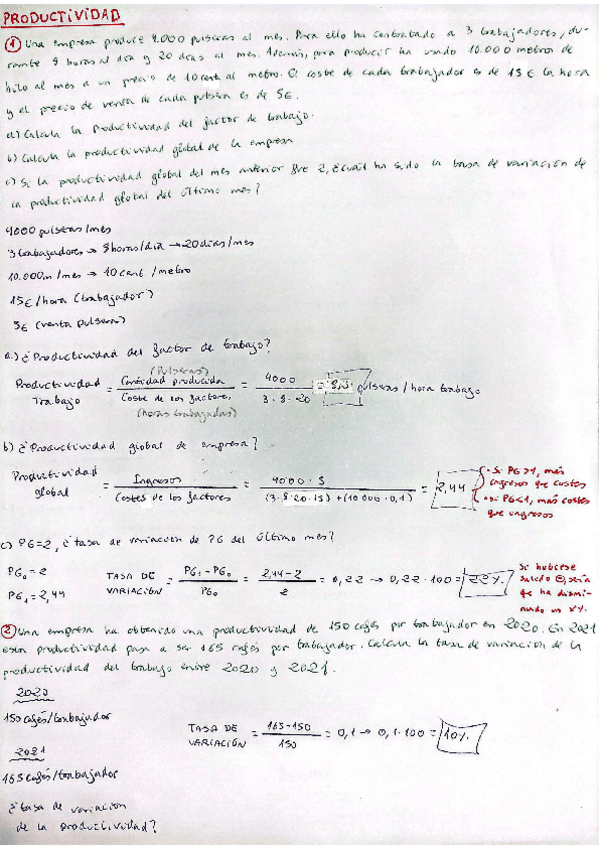 PRODUCTIVIDAD
① Una empresa produce 4.000 pulseras al mes. Para ello ha contratado a 3 trabajadores, du-
rante 8 horas al día y 20 días al mes. Además, para producir ha usado 10.000 metros de
hilo al mes a un precio de 10 cent al metro. El coste de cada trabajador es de 15 € la hora
y el precio de venta de cada pulsera es de 5€.
a) Calcula la Productividad del factor de trabajo.
b) Calcula la productividad global de la empresa
c) Si la productividad global del mes anterior fue 2, ¿cuál ha sido la tasa de variación de
la productividad global del último mes?
4000 pulseras/mes
3 trabajadores → 8 horas/día → 20 días/mes
10.000m/mes → 10 cent /metro
15€/hora (trabajador)
5€ (venta pulsera)
a) ¿Productividad del factor de trabajo?
Productividad Trabajo = Cantidad producida (Pulseras) / Coste de los factores (horas trabajadas) = 4000 / 3·8·20 = 8,3 pulseras / hora trabajo
b) ¿Productividad global de empresa?
Productividad global = Ingresos / Costes de los factores = 4000·5 / (3·8·20·15)+(10000·0,1) = 2,44
· Si PG>1, más ingresos que costes
· si PG<1, más costes que ingresos
c) PG=2, ¿tasa de variación de PG del último mes?
PG₀ = 2
PG₁ = 2,44
TASA DE VARIACIÓN = PG₁ - PG₀ / PG₀ = 2,44-2 / 2 = 0,22 → 0,22·100 = 22%
Si hubiese salido ⊖, sería que ha disminuido un x%.
② Una empresa ha obtenido una productividad de 150 cajas por trabajador en 2020. En 2021
esta productividad pasa a ser 165 cajas por trabajador. Calcula la tasa de variación de la
productividad del trabajo entre 2020 y 2021.
2020
150 cajas/trabajador
2021
165 cajas/trabajador
TASA DE VARIACIÓN = 165-150 / 150 = 0,1 → 0,1·100 = 10%
¿tasa de variación
de la productividad?